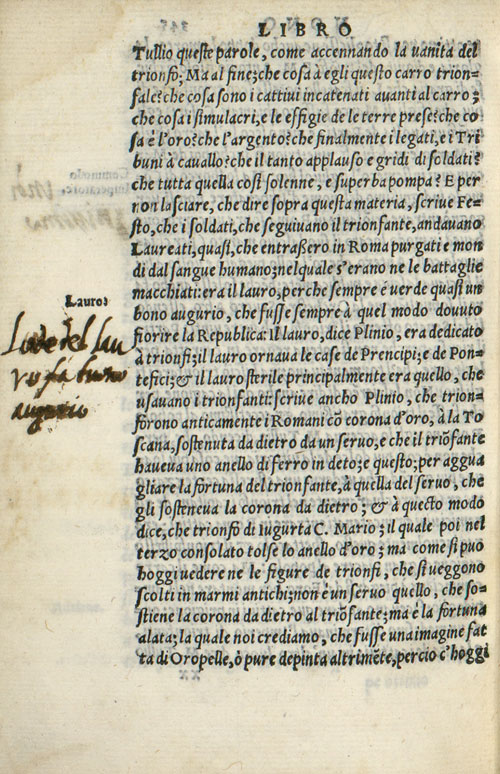 LIBRO
Tullio queste parole, come accennando la uanita del
trionfo; Ma al fine; che cosa à egli questo carro trion-
fale? che cosa sono i cattiui incatenati auanti al carro;
che cosa i simulacri, e le effigie de le terre prese? che co
sa é l'oro? che l'argento? che finalmente i legati, e i Tri
buni à cauallo? che il tanto applauso e gridi di soldati?
che tutta quella cosi solenne, e superba pompa? E per
non lasciare, che dire sopra questa materia, scriue Fe-
sto, che i soldati, che seguiuano il trionfante, andauano
Laureati, quasi, che entraßero in Roma purgati e mon
di dal sangue humano; nel quale s'erano ne le battaglie
macchiati: era il lauro, perche sempre é uerde quasi un
bono augurio, che fusse sempre à quel modo douuto
fiorire la Republica: Il lauro, dice Plinio, era dedicato
à trionfi; il lauro ornaua le case de Prencipi; e de Pon-
tefici; & il lauro sterile principalmente era quello, che
usauano i trionfanti: scriue ancho Plinio, che trion-
forono anticamente i Romani cō corona d'oro, à la To
scana, sostenuta da dietro da un seruo, e che il triōfante
haueua uno anello di ferro in deto; e questo; per aggua
gliare la fortuna del trionfante, à quella del seruo, che
gli sosteneua la corona da dietro; & à quecto modo
dice, che trionfò di Iugurta C. Mario; il quale poi nel
terzo consolato tolse lo anello d'oro; ma come si può
hoggi uedere ne le figure de trionfi, che si ueggono
scolti in marmi antichi; non é un seruo quello, che so-
stiene la corona da dietro al triōfante; ma é la fortuna
alata; la quale noi crediamo, che fusse una imagine fat
ta di Oropelle, ò pure depinta altrimēte, percio c'hoggi
Lauro;
Lode del lau
ro fa buono
augurio